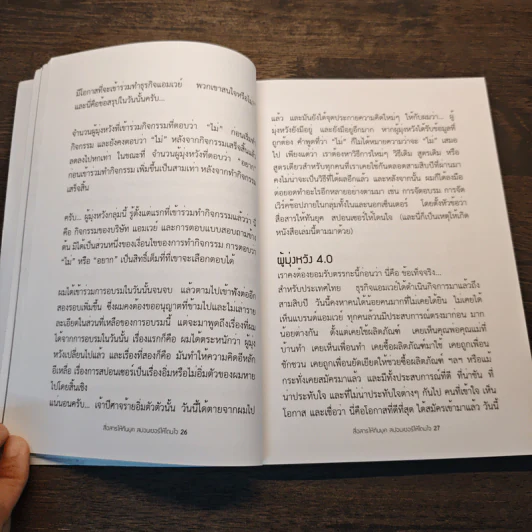 มีโอกาสที่จะเข้าร่วมทำธุรกิจแอมเวย์ พวกเขาสนใจหรือไม่
และนี่คือข้อสรุปในวันนั้นครับ...
จำนวนผู้มุ่งหวังที่เข้าร่วมกิจกรรมที่ตอบว่า "ไม่" ก่อนเริ่มทำ
กิจกรรม และยังคงตอบว่า "ไม่" หลังจากกิจกรรมเสร็จสิ้นแล้ว
ลดลงไปหกเท่า ในขณะที่ จำนวนผู้มุ่งหวังที่ตอบว่า "อยาก"
ก่อนเข้าร่วมทำกิจกรรม เพิ่มขึ้นเป็นสามเท่า หลังจากทำกิจกรรม
เสร็จสิ้น
ครับ... ผู้มุ่งหวังกลุ่มนี้ รู้ตั้งแต่แรกที่เข้าร่วมทำกิจกรรมแล้วว่า นี่
คือ กิจกรรมของบริษัท แอมเวย์ และการตอบแบบสอบถามข้าง
ต้น มิได้เป็นส่วนหนึ่งของเงื่อนไขของการทำกิจกรรม การตอบว่า
"ไม่" หรือ "อยาก" เป็นสิทธิ์เต็มที่ที่เขาจะเลือกตอบได้
ผมได้เข้าร่วมการอบรมในวันนั้นจนจบ แล้วตามไปเข้าฟังต่ออีก
สองรอบเพิ่มขึ้น ซึ่งผมคงต้องขออนุญาตที่ข้ามไปและไม่เล่าราย
ละเอียดในส่วนที่เหลือของการอบรมนี้ แต่จะมาพูดถึงเรื่องที่ผม
ได้จากการอบรมในวันนั้น เรื่องแรกก็คือ ผมได้ตระหนักว่า ผู้มุ่ง
หวังเปลี่ยนไปแล้ว และเรื่องที่สองก็คือ มันทำให้ความคิดอีหลัก
อีเหลื่อ เรื่องการสปอนเซอร์เป็นเรื่องอิ่มหรือไม่อิ่มตัวของผมหาย
ไปโดยสิ้นเชิง
แน่นอนครับ... เจ้าปีศาจร้ายอิ่มตัวตัวนั้น วันนี้ได้ตายจากผมไป
สื่อสารให้ทันยุค สปอนเซอร์ให้โดนใจ 26
แล้ว และมันยังได้จุดประกายความคิดใหม่ๆ ให้กับผมว่า... ผู้
มุ่งหวังยังมีอยู่ และยังมีอยู่อีกมาก หากผู้มุ่งหวังได้รับข้อมูลที่
ถูกต้อง คำพูดที่ว่า "ไม่" ก็ไม่ได้หมายความว่าจะ "ไม่" เสมอ
ไป เพียงแต่ว่า เราต้องหาวิธีการใหม่ๆ วิธีเดิม สูตรเดิม หรือ
สูตรเดียวสำหรับทุกคนที่เราเคยใช้กันตลอดสามสิบปีที่ผ่านมา
คงไม่น่าจะเป็นวิธีที่ได้ผลอีกแล้ว และหลังจากนั้น ผมก็ได้ลงมือ
ต่อยอดทำอะไรอีกหลายอย่างตามมา เช่น การจัดอบรม การจัด
เวิร์คช้อปภายในกลุ่มทั้งในและนอกเซ็นเตอร์ โดยตั้งหัวข้อว่า
สื่อสารให้ทันยุค สปอนเซอร์ให้โดนใจ (และนี่ก็เป็นเหตุให้เกิด
หนังสือเล่มนี้ตามมาด้วย)
ผู้มุ่งหวัง 4.0
เราคงต้องยอมรับตรรกะนี้ก่อนว่า นี่คือ ข้อเท็จจริง...
สำหรับประเทศไทย ธุรกิจแอมเวย์ได้ดำเนินกิจการมาแล้วถึง
สามสิบปี วันนี้คงหาคนได้น้อยคนมากที่ไม่เคยได้ยิน ไม่เคยได้
เห็นแบรนด์แอมเวย์ ทุกคนล้วนมีประสบการณ์ตรงมาก่อน มาก
น้อยต่างกัน ตั้งแต่เคยใช้ผลิตภัณฑ์ เคยเห็นคุณพ่อคุณแม่ที่
บ้านทำ เคยเห็นเพื่อนทำ เคยซื้อผลิตภัณฑ์มาใช้ เคยถูกเพื่อน
ชักชวน เคยถูกเพื่อนยัดเยียดให้ช่วยซื้อผลิตภัณฑ์ ฯลฯ หรือแม้
กระทั่งเคยสมัครมาแล้ว และมีทั้งประสบการณ์ที่ดี ที่น่าขัน ที่
น่าประทับใจ และที่ไม่น่าประทับใจต่างๆ กันไป คนที่เข้าใจ เห็น
โอกาส และเชื่อว่า นี่คือโอกาสที่ดีที่สุด ได้สมัครเข้ามาแล้ว วันนี้
สื่อสารให้ทันยุค สปอนเซอร์ให้โดนใจ 27